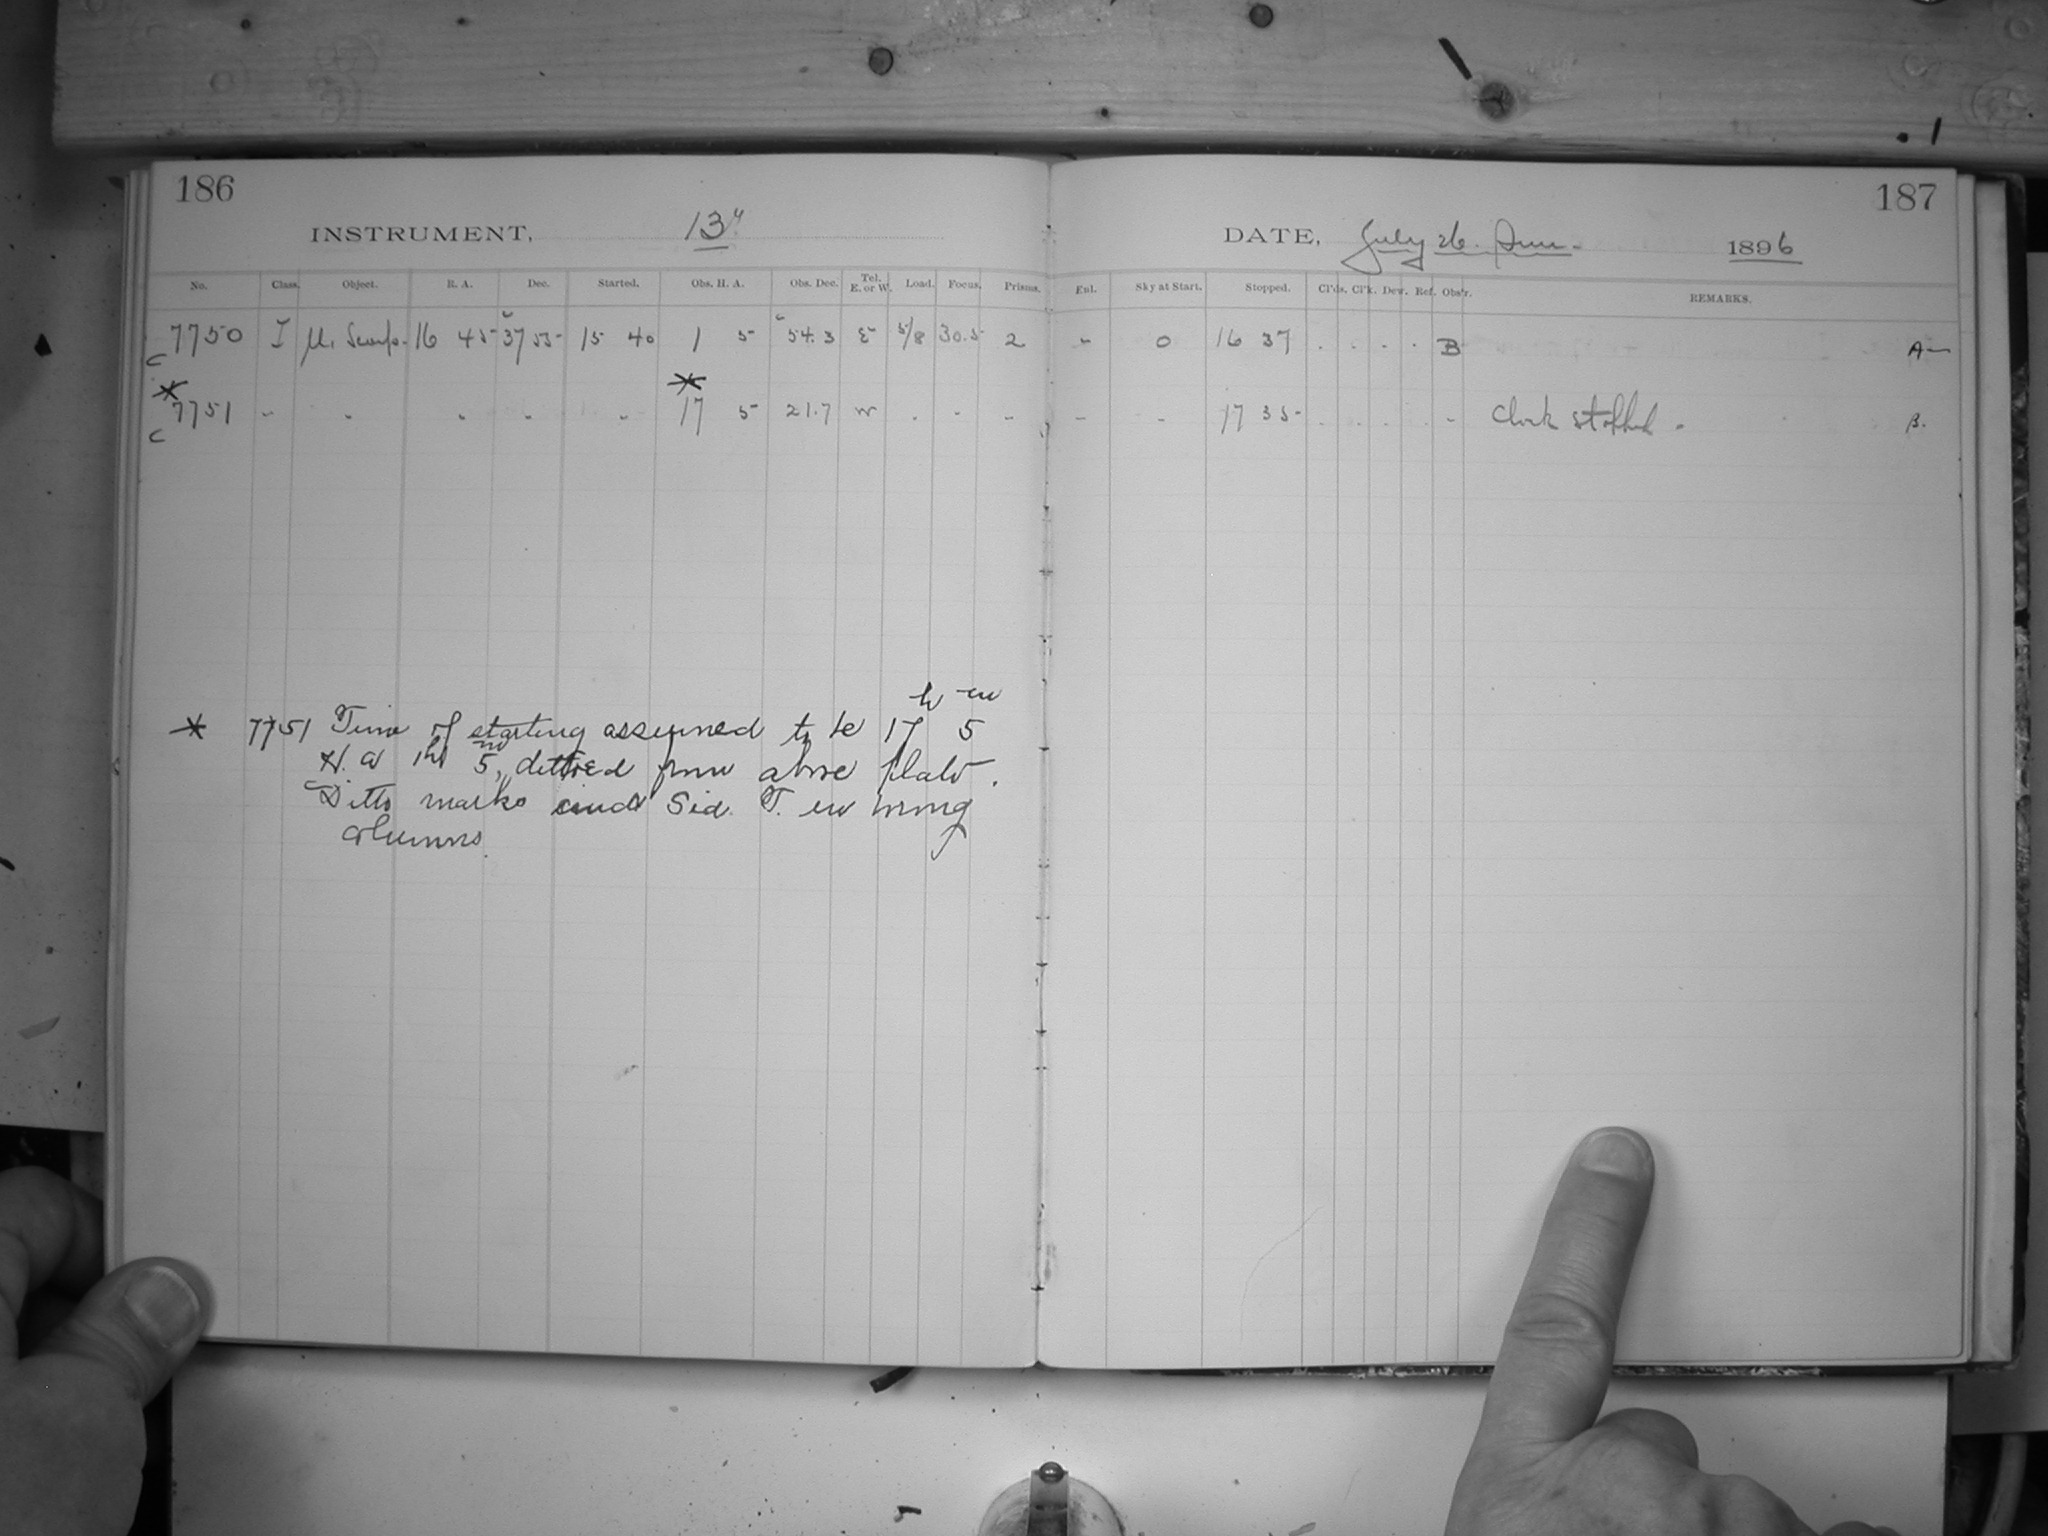 186
INSTRUMENT, 13"
No. Class. Object. R. A. Dec. Started. Obs. H. A. Obs. Dec. Tel. E. or W. Load. Focus. Prisms.
7750 I μ, Scorp. 16 45 37 55 15 40 1 5 54.3 E 5/8 30.5 2
C
* *
7751 " " " " " 17 5 21.7 W " " "
C
* 7751 Time of starting assumed to be 17h 5m
H.A 1h 5m, dittoed from above plate.
Ditto marks and Sid. T. in wrong
columns.
187
DATE, July 26. Sun. 1896
Eul. Sky at Start. Stopped. Cl'ds. Cl'k. Dew. Ref. Obs'r. REMARKS.
- 0 16 37 . . . . B A—
- - 17 35 . . . . - Clock stopped. B.